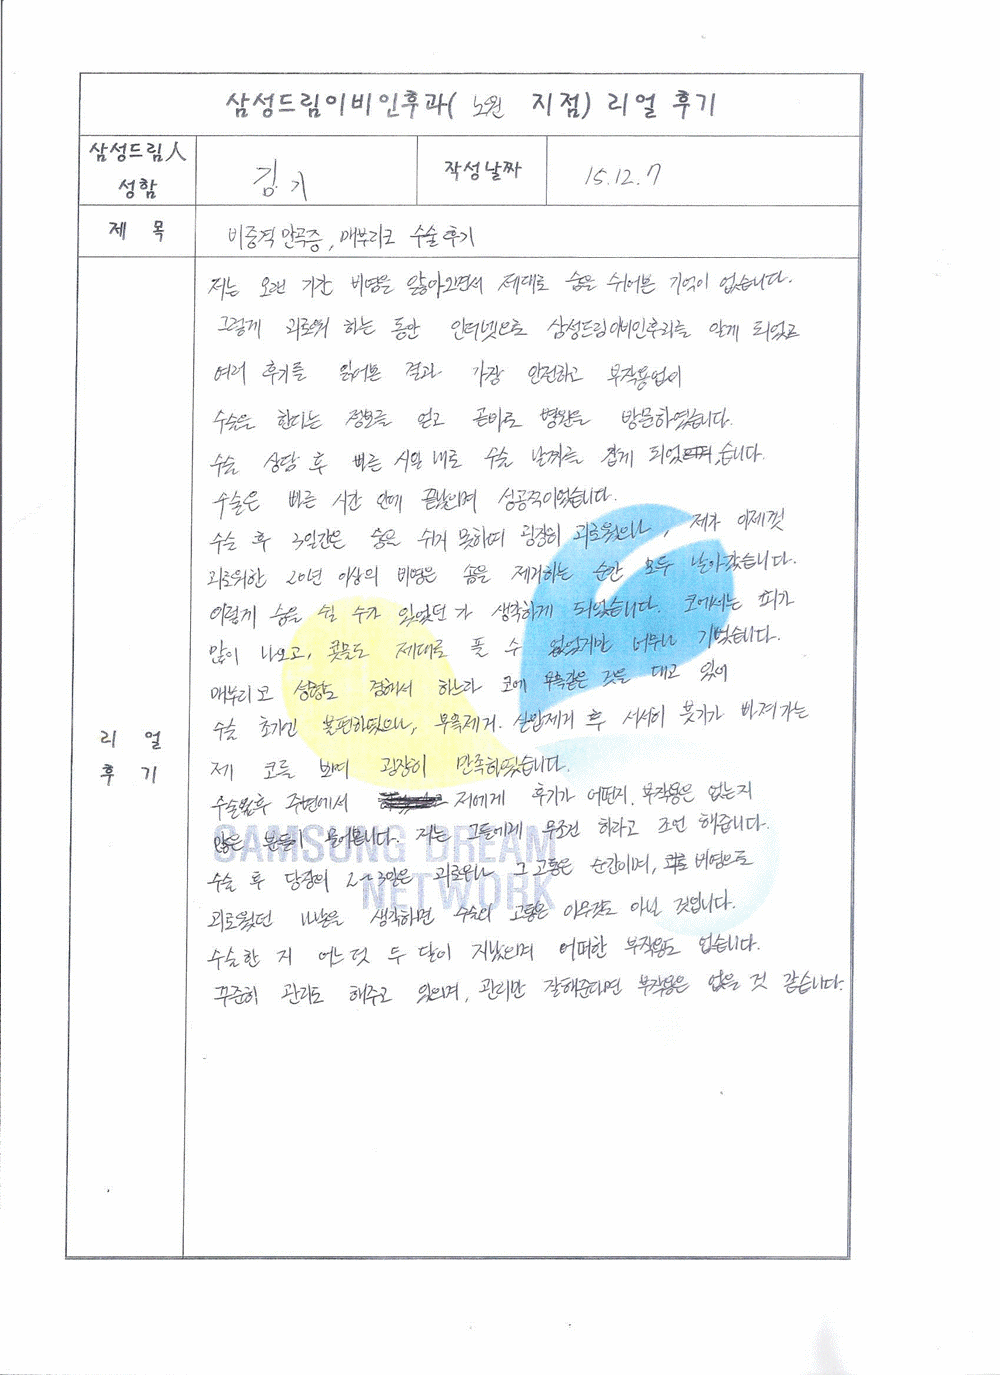 삼성드림이비인후과( 노원 지점) 리얼 후기
삼성드림人
성함
김 기
작성날짜
15.12.7
제 목
비중격 만곡증, 매부리코 수술후기
리 얼
후 기
저는 오랜 기간 비염을 앓아오면서 제대로 숨을 쉬어본 기억이 없습니다.
그렇게 괴로워 하는 동안 인터넷으로 삼성드림이비인후과를 알게 되었고
여러 후기를 읽어본 결과 가장 안전하고 부작용없이
수술을 한다는 정보를 얻고 곧바로 병원을 방문하였습니다.
수술 상담 후 빠른 시일 내로 수술 날짜를 잡게 되었습니다.
수술은 빠른 시간 안에 끝났으며 성공적이었습니다.
수술 후 3일간은 숨을 쉬지 못하며 굉장히 괴로웠으나, 제가 이제껏
괴로워한 20년 이상의 비염은 솜을 제거하는 순간 모두 날아갔습니다.
이렇게 숨을 쉴 수가 있었던가 생각하게 되었습니다. 코에서는 피가
많이 나오고, 콧물도 제대로 풀 수 없었지만 너무나 기뻤습니다.
매부리코 성형도 겸해서 하느라 코에 부목같은 것을 대고 있어
수술 초기엔 불편하였으나, 부목제거. 실밥제거 후 서서히 붓기가 빠져가는
제 코를 보며 굉장히 만족하였습니다.
수술 후 주변에서 저에게 후기가 어떤지, 부작용은 없는지
많은 분들이 물어봅니다. 저는 그들에게 무조건 하라고 조언 해줍니다.
수술 후 당장의 2~3일은 괴로우나 그 고통은 순간이며, 비염으로
괴로웠던 나날을 생각하면 수술의 고통은 아무것도 아닌 것입니다.
수술한 지 어느덧 두 달이 지났으며 어떠한 부작용도 없습니다.
꾸준히 관리도 해주고 있으며, 관리만 잘해준다면 부작용은 없을 것 같습니다.
SAMSUNG DREAM
NETWORK